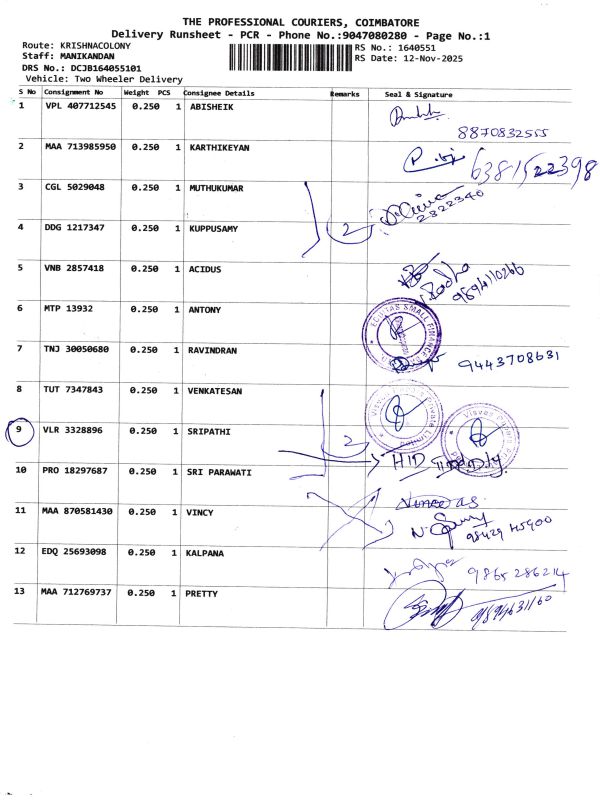 THE PROFESSIONAL COURIERS, COIMBATORE
Delivery Runsheet - PCR - Phone No.:9047080280 - Page No.:1
Route: KRISHNACOLONY
RS No.: 1640551
Staff: MANIKANDAN
RS Date: 12-Nov-2025
DRS No.: DCJB164055101
Vehicle: Two Wheeler Delivery
S No Consignment No Weight PCS Consignee Details Remarks Seal & Signature
1 VPL 407712545 0.250 1 ABISHEIK
8870832555
2 MAA 713985950 0.250 1 KARTHIKEYAN
6381522398
3 CGL 5029048 0.250 1 MUTHUKUMAR
2 2822346
4 DDG 1217347 0.250 1 KUPPUSAMY
5 VNB 2857418 0.250 1 ACIDUS
Radha
9894110266
6 MTP 13932 0.250 1 ANTONY
EQUITAS SMALL FINANCE
7 TNJ 30050680 0.250 1 RAVINDRAN
9443708631
8 TUT 7347843 0.250 1 VENKATESAN
9 VLR 3328896 0.250 1 SRIPATHI
2
HID
10 PRO 18297687 0.250 1 SRI PARAWATI
11 MAA 870581430 0.250 1 VINCY
98429 45900
12 EDQ 25693098 0.250 1 KALPANA
9865286214
13 MAA 712769737 0.250 1 PRETTY
9894631160